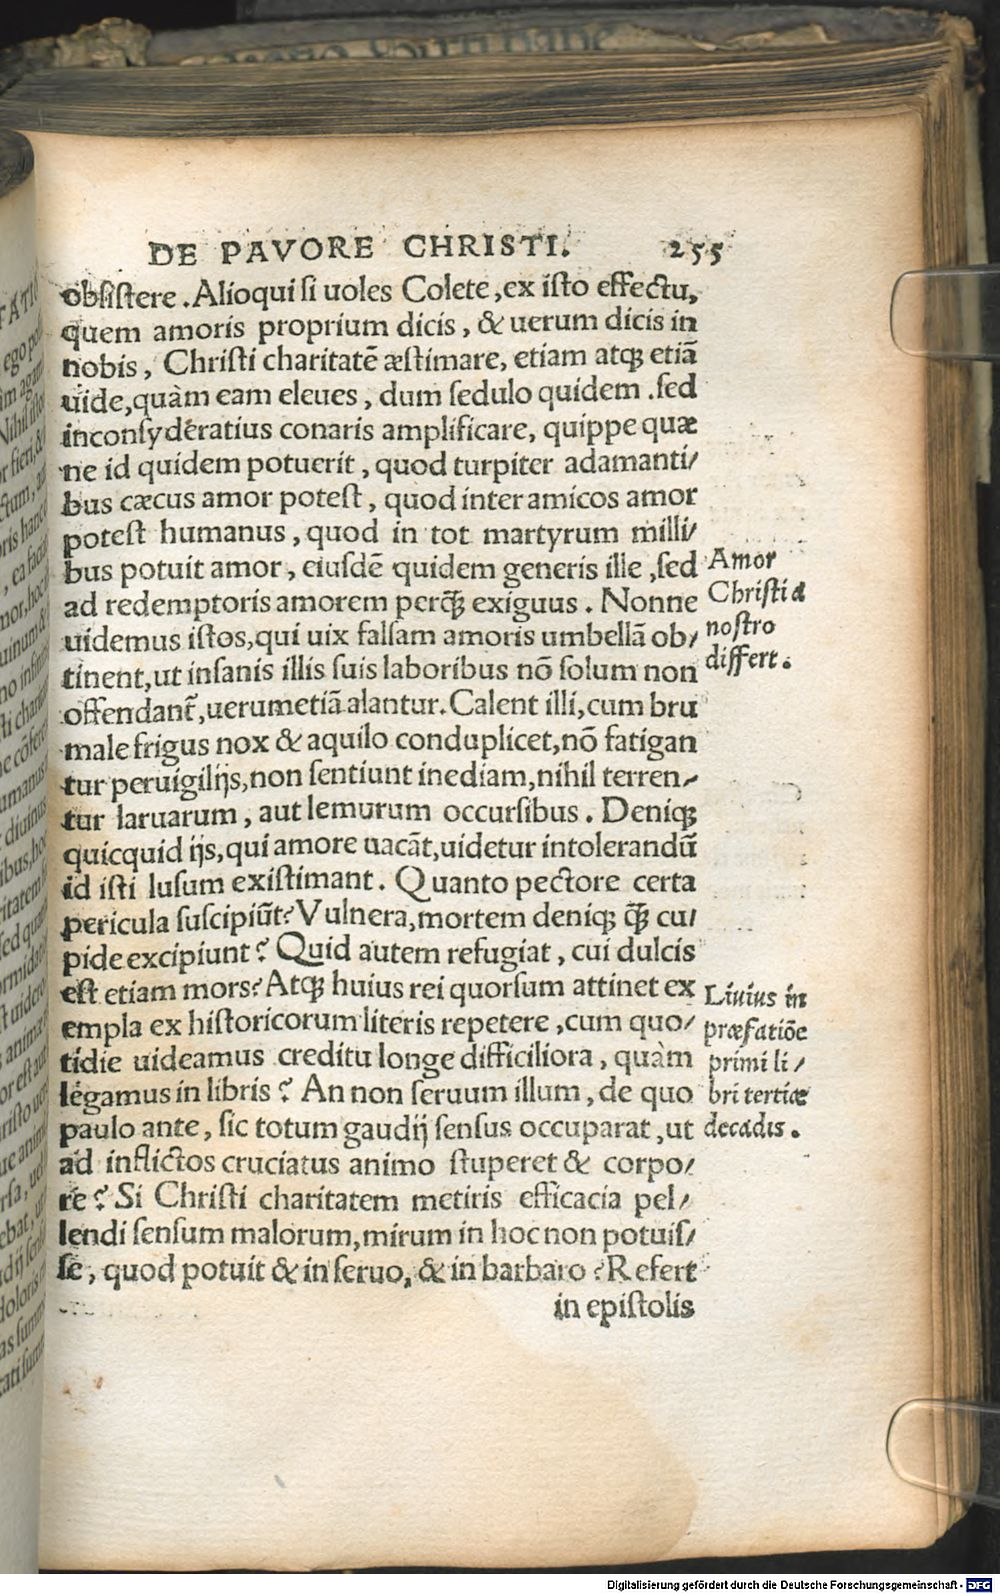 DE PAVORE CHRISTI. 255
obsistere. Alioqui si uoles Colete, ex isto effectu,
quem amoris proprium dicis, & uerum dicis in
nobis, Christi charitatē æstimare, etiam atq; etiā
uide, quàm eam eleues, dum sedulo quidem. sed
inconsyderatius conaris amplificare, quippe quæ
ne id quidem potuerit, quod turpiter adamanti/
bus cæcus amor potest, quod inter amicos amor
potest humanus, quod in tot martyrum milli/
bus potuit amor, eiusdē quidem generis ille, sed
ad redemptoris amorem perq̃ exiguus. Nonne
uidemus istos, qui uix falsam amoris umbellā ob/
tinent, ut insanis illis suis laboribus nō solum non
offendant̃, uerumetiā alantur. Calent illi, cum bru
male frigus nox & aquilo conduplicet, nō fatigan
tur peruigilijs, non sentiunt inediam, nihil terren/
tur laruarum, aut lemurum occursibus. Deniq;
quicquid ijs, qui amore uacāt, uidetur intolerandū
id isti lusum existimant. Quanto pectore certa
pericula suscipiūt? Vulnera, mortem deniq; q̃ cu/
pide excipiunt? Quid autem refugiat, cui dulcis
est etiam mors? Atq; huius rei quorsum attinet ex
empla ex historicorum literis repetere, cum quo/
tidie uideamus creditu longe difficiliora, quàm
legamus in libris? An non seruum illum, de quo
paulo ante, sic totum gaudij sensus occuparat, ut
ad inflictos cruciatus animo stuperet & corpo/
re? Si Christi charitatem metiris efficacia pel/
lendi sensum malorum, mirum in hoc non potuis/
se, quod potuit & in seruo, & in barbaro? Refert
in epistolis
Amor
Christi a
nostro
differt.
Liuius in
præfatiōe
primi li/
bri tertiæ
decadis.
Digitalisierung gefördert durch die Deutsche Forschungsgemeinschaft - DFG